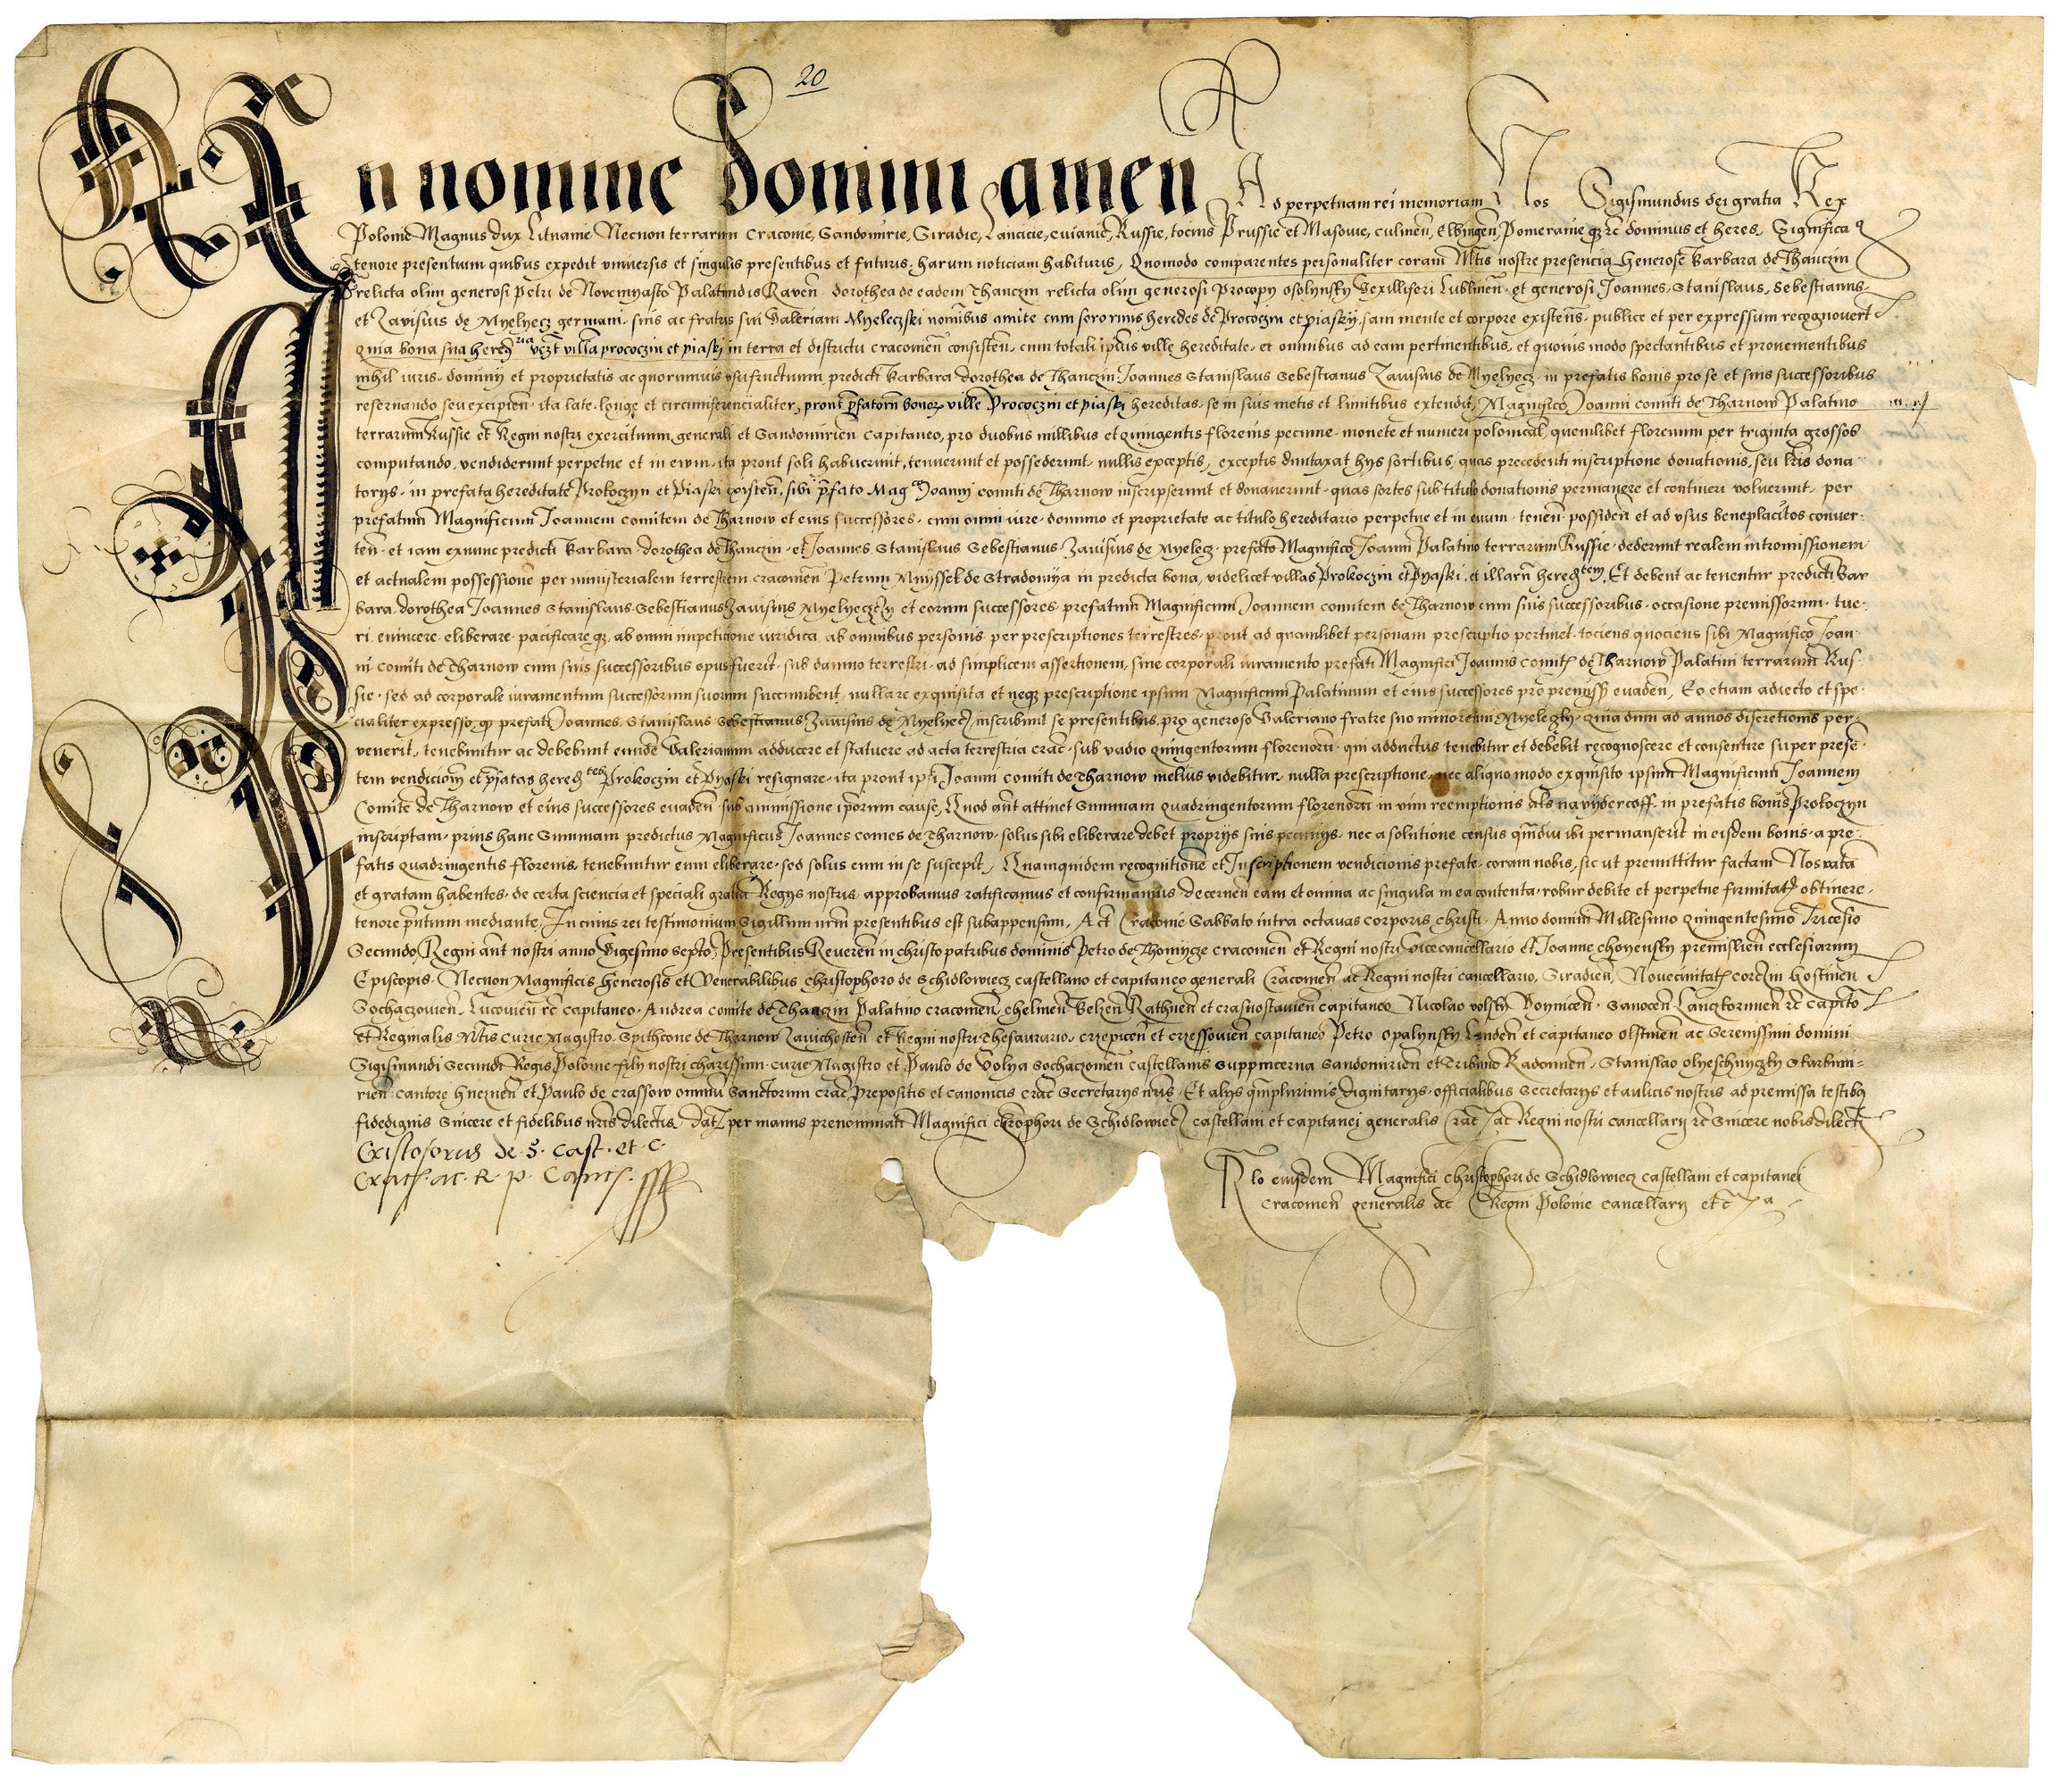 20
In nomine Domini amen Ad perpetuam rei memoriam Nos Sigismundus dei gratia Rex
Polonie Magnus dux Lituanie Necnon terrarum Cracovie, Sandomirie, Siradie, Lancicie, Cuiavie, Russie, tocius Prussie et Masovie, Culmen̄, Elbingen̄, Pomeranie qʒ rc̄ dominus et heres, Significa
tenore presentium quibus expedit universis et singulis presentibus et futuris, harum noticiam habituris, Quomodo comparentes personaliter coram Mtis nostre presencia Generose Barbara de Thanczin
relicta olim generosi Petri de Novemyasto Palatindis Raven̄ dorothea de eadem Thanczin relicta olim generosi Procopy Osolynsky Vexilliferi Lublinen̄ et generosi Joannes, Stanislaus, Sebestianus
et Zavisius de Myelyecz germani, suis ac fratris sui Valeriani Myeleczski nomibus amite cum sororinis heredes de Prococzin et piaskij, sani mente et corpore existen̄s, publice et per expressum recognovert̄
quia bona sua hered ria vczt villa prococzin et piaski in terra et districtu cracomen̄ consisten̄, cum totali ip̄ius ville hereditate, et omnibus ad eam pertinentibus, et quovis modo spectantibus et provenientibus
nihil iuris, dominy et proprietatis ac quorumvis usufructuum, predicti Barbara dorothea de Thanczin Joannes Stanislaus Sebestianus Zavisius de Myelyecz in prefatis bonis pro se et suis successoribus
reservando seu excipien̄, ita late, longe et circumferencialiter, prout p̄fatorū bonor ville Prococzin et piaski hereditas, se in suis metis et limitibus extendit, Magnifico Joanni comiti de Tharnow Palatino
terrarum Russie et Regni nostri exercituum generali et Sandomirien̄ capitaneo, pro duobus millibus et quingentis florenis pecunie, monete et numeri polonical, quemlibet florenum per triginta grossos
computando, vendiderunt perpetue et in evum, ita prout soli habuerunt, tenuerunt et possederunt, nullis exceptis, exceptis duntaxat hys sortibus, quas precedenti inscriptione donationis, seu lr̄is dona
torys, in prefata hereditate Prokoczyn et Piaski existen̄, sibi p̄fato Mag co Joanni comiti de Tharnow inscripserunt et donaverunt, quas sortes sub titulo donationis permanere et contineri voluerunt, per
prefatum Magnificum Joannem comitem de Tharnow et eius successores, cum omni iure, dominio et proprietate ac titulo hereditario perpetue et in evum, tenen̄ possiden̄ et ad usus beneplacitos conver
ten̄, et iam exnunc predicti Barbara dorothea de Thanczin, et Joannes Stanislaus Sebestianus Zavisius de Myelecz, prefato Magnifico Joanni Palatino terrarum Russie, dederunt realem intromissionem
et actualem possessionē per ministerialem terrestrem cracomen̄ Petrum Mnyssek de Stradomya in predicta bona, videlicet villas Prokoczin et Pyaski, et illarū hered tem, Et debent ac tenentur predicti Bar
bara, dorothea Joannes Stanislaus Sebestianus Zavisius Myelyeczczy et eorum successores prefatum Magnificum Joannem comitem de Tharnow cum suis successoribus, occasione premissorum, tue
ri, evincere, eliberare, pacificare qʒ, ab omni impeticione iuridica ab omnibus personis, per prescriptiones terrestres, prout ad quamlibet personam prescriptio pertinet, tociens quociens sibi Magnifico Joan
ni Comiti de Tharnow cum suis successoribus opus fuerit, sub damno terrestri, ad simplicem assertionem, sine corporali iuramento prefati Magnifici Joannis comitis de Tharnow Palatini terrarum Rus
sie, sed ad corporale iuramentum successorum suorum succumbent, nulla re exquisita et neqʒ prescriptione ipsum Magnificum Palatinum et eius successores pro premissis evaden̄, Eo etiam adiecto et spe
cialiter expresso, qp prefati Joannes, Stanislaus Sebestianus Zavisius de Myelyecz inscribunt se presentibus, pro generoso Valeriano fratre suo minorenni Myeleczky, quia dum ad annos discretionis per
venerit, tenebuntur ac debebunt eundē Valerianum adducere et statuere ad acta terrestria crac̄, sub vadio quingentorum florenorū, qui adductus tenebitur et debebit recognoscere et consentire super presē
tem vendicionē et p̄fatas hered tes Prokoczin et Pyaski resignare, ita prout ip̄i Joanni comiti de Tharnow melius videbitur, nulla prescriptione, nec aliquo modo exquisito ipsum Magnificum Joannem
Comitē de Tharnow et eius successores evaden̄ sub ammissione ip̄orum cause, Quod aūt attinet Summam quadringentorum florenorū in vim reemptionis als na vydercoff in prefatis bonis Prokoczyn
inscriptam, prius hanc Summam predictus Magnificus Joannes comes de Tharnow, solus sibi eliberare debet proprys suis pecunys, nec a solutione census qm̄diu ibi permanserit in eisdem bonis, a pre
fatis quadringentis florenis, tenebuntur eum eliberare, sed solus eum in se suscepit, Quamquidem recognitionē et Inscriptionem vendicionis prefate, coram nobis, sic ut premittitur factam Nos ratā
et gratam habentes, de certa sciencia et speciali gratia Regys nostris, approbamus ratificamus et confirmamus, decernen̄ eam et omnia ac singula in ea contenta, robur debite et perpetue firmitatis obtinere
tenore p̄ntium mediante, In cuius rei testimonium Sigillum nr̄m presentibus est subappensum, Act Cracovie Sabbato intra octavas corporis christi, Anno domini Millesimo quingentesimo Tricesio
Secundo, Regni aūt nostri anno Vigesimo septo, Presentibus Reveren̄ in christo patribus dominis Petro de Thomycze cracomen̄ et Regni nostri vicecancellario et Joanne choyensky premislien̄ ecclesiarum
Episcopis, Necnon Magnificis Generosis et Venerabilibus christophoro de Schidlowiecz castellano et capitaneo generali Cracomen̄ ac Regni nostri cancellario, Siradien̄, Novecivitatis corczin Gostinen̄
Sochaczovien̄, Lucovien̄ rc̄ capitaneo, Andrea comite de Thanczin Palatino cracomen̄, chelmen̄ Belzen̄ Rathnen̄ et crasnostavien̄ capitaneo Nicolao volsky Voynicen̄, Sanocen̄ Lanczkorunien̄ rc̄ capito
et Reginalis Mtis curie Magistro Spithcone de Tharnow Zavichosten̄ et Regni nostri thesaurario, crzepicen̄ et crzessovien̄ capitaneo Petro Opalynsky Landen̄ et capitaneo Olstinen̄ ac Serenissimi domini
Sigismundi Secundi Regis Polonie, fily nostri charissimi, curie Magistro et Paulo de Volya Sochaczomen̄ castellanis Suppincerna Sandomirien̄ et Tribuno Radomien̄, Stanislao Olyeschnyczky Starbimi
rien̄ cantore Gneznen̄ et Paulo de Crassow omniū Sanctorum crac̄ Prepositis et canonicis crac̄ Secretarys nr̄is, Et alys qm̄plurimis dignitarys, officialibus Secretarys et aulicis nostris ad premissa testibʒ
fidedignis Sincere et fidelibus nr̄is dilectis, dat per manus prenominati Magnifici chrophori de Schidlowiecz castellani et capitanei generalis Crac̄ ac Regni nostri cancellary rc̄ Sincere nobis dilecti
Cristoforus de S. Cast. et C.
Crach. ac. R. p. Canc.
Rlo eiusdem Magnifici christophori de Schidlowiecz castellani et capitanei
Cracomen̄ generalis ac Regni Polonie cancellary etc̄